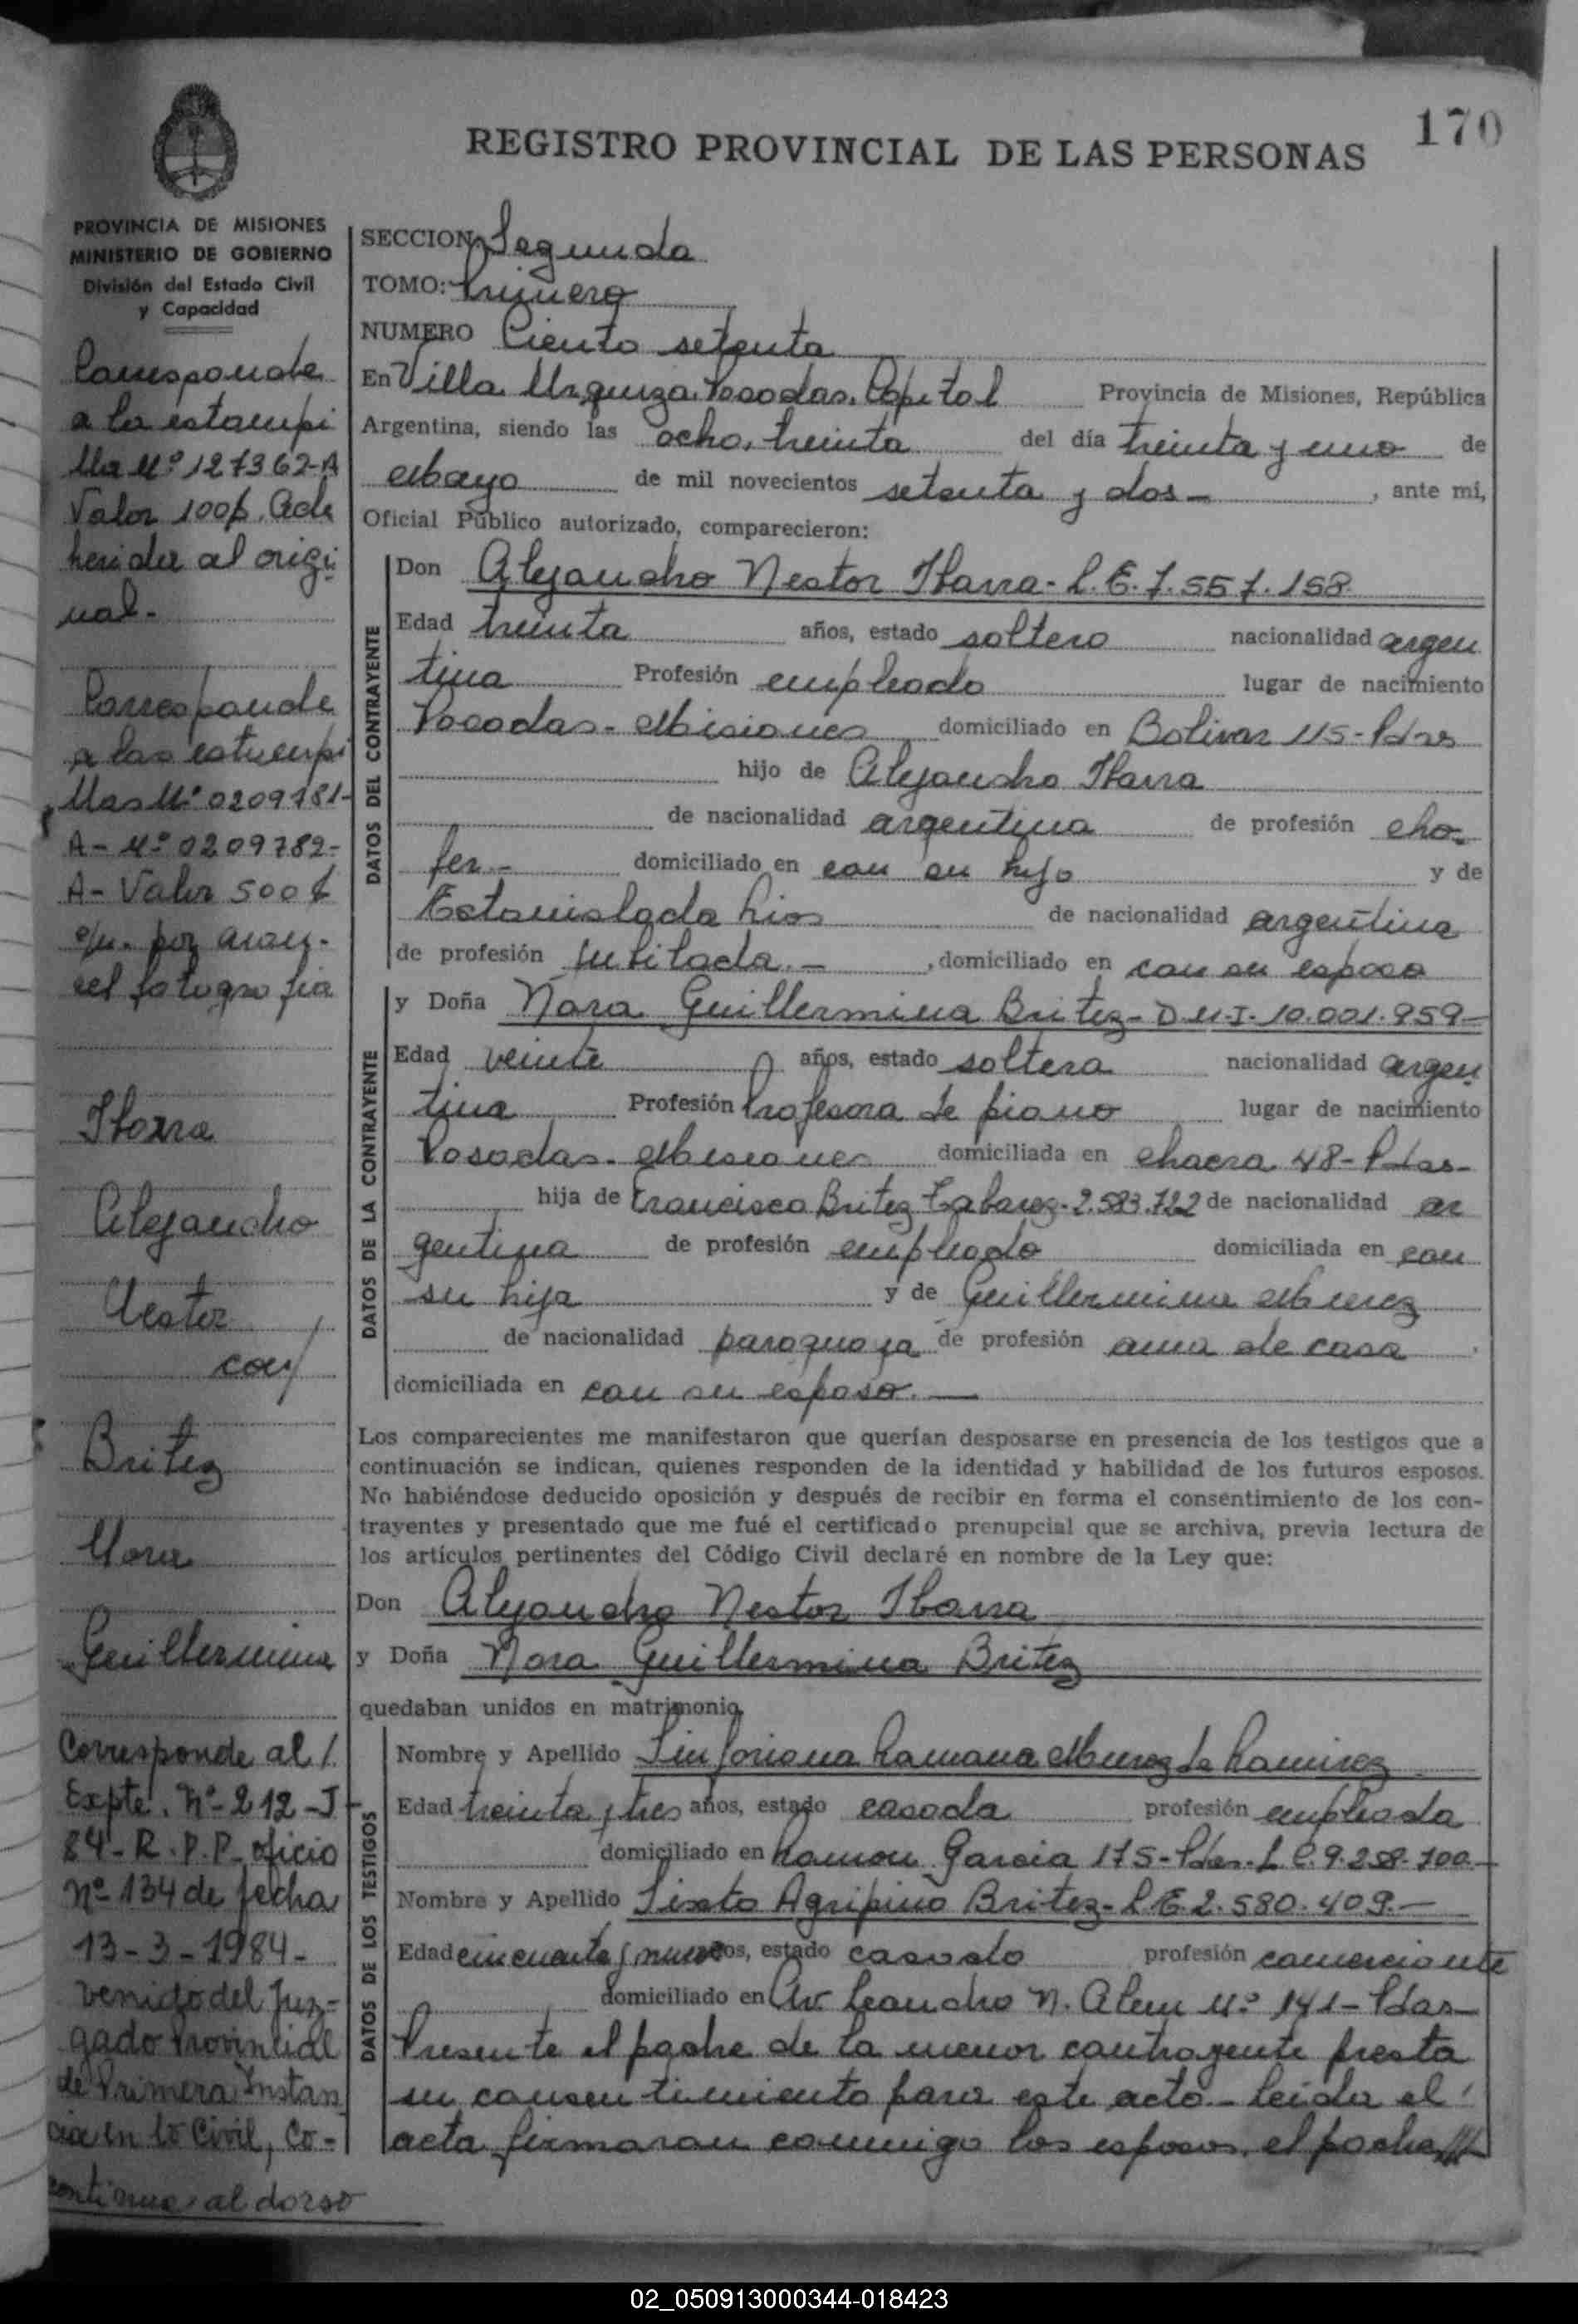 170
REGISTRO PROVINCIAL DE LAS PERSONAS
PROVINCIA DE MISIONES
MINISTERIO DE GOBIERNO
División del Estado Civil
y Capacidad
Corresponde
a la estampi
lla Nº 127362-A
Valor 100$. Adh
herida al origi
nal.-
Corresponde
a las estampi
llas Nº 0209781-
A- Nº 0209782-
A- Valor 500$
c/u. por aran-
cel fotografia
Ibarra
Alejandro
Nestor
con/
Britez
Nora
Guillermina
Corresponde al /.
Expte. Nº 212-J-
84- R.P.P. oficio
Nº 134 de fecha
13-3-1984-
venido del Juz-
gado Provincial
de Primera Instan
cia en lo Civil, Co-
continua al dorso
SECCION: Segunda
TOMO: Primero
NUMERO Ciento setenta
En Villa Urquiza. Posadas. Capital Provincia de Misiones, República
Argentina, siendo las ocho, treinta del día treinta y uno de
Mayo de mil novecientos setenta y dos - , ante mi,
Oficial Público autorizado, comparecieron:
DATOS DEL CONTRAYENTE
Don Alejandro Nestor Ibarra- L.E. 7.557.158
Edad treinta años, estado soltero nacionalidad argen
tina Profesión empleado lugar de nacimiento
Posadas- Misiones domiciliado en Bolivar 115- Pdas
hijo de Alejandro Ibarra
de nacionalidad argentina de profesión cho-
fer.- domiciliado en con su hijo y de
Estanislada Rios de nacionalidad argentina
de profesión jubilada.- , domiciliado en con su esposo
DATOS DE LA CONTRAYENTE
y Doña Nora Guillermina Britez- D.N.I. 10.001.959-
Edad veinte años, estado soltera nacionalidad argen
tina Profesión Profesora de piano lugar de nacimiento
Posadas- Misiones domiciliada en chacra 48- Pdas-
hija de Francisco Britez Tabarez- 2.583.722 de nacionalidad ar
gentina de profesión empleado domiciliada en con
su hija y de Guillermina Munez
de nacionalidad paraguaya de profesión ama de casa
domiciliada en con su esposo.
Los comparecientes me manifestaron que querían desposarse en presencia de los testigos que a
continuación se indican, quienes responden de la identidad y habilidad de los futuros esposos.
No habiéndose deducido oposición y después de recibir en forma el consentimiento de los con-
trayentes y presentado que me fué el certificado prenupcial que se archiva, previa lectura de
los artículos pertinentes del Código Civil declaré en nombre de la Ley que:
Don Alejandro Nestor Ibarra
y Doña Nora Guillermina Britez
quedaban unidos en matrimonio.
DATOS DE LOS TESTIGOS
Nombre y Apellido Sinforiana Ramona Munez de Ramirez
Edad treinta y tres años, estado casada profesión empleada
domiciliado en Ramon Garcia 175- Pdas- L.C. 9.258.700-
Nombre y Apellido Sixto Agripino Britez- L.E. 2.580.409.-
Edad cincuenta y nueve años, estado casado profesión comerciante
domiciliado en Av. Leandro N. Alem Nº 141- Pdas-
Presente el padre de la menor contrayente presta
su consentimiento para este acto- Leida el
acta firmaron conmigo los esposos, el padre
02_050913000344-018423